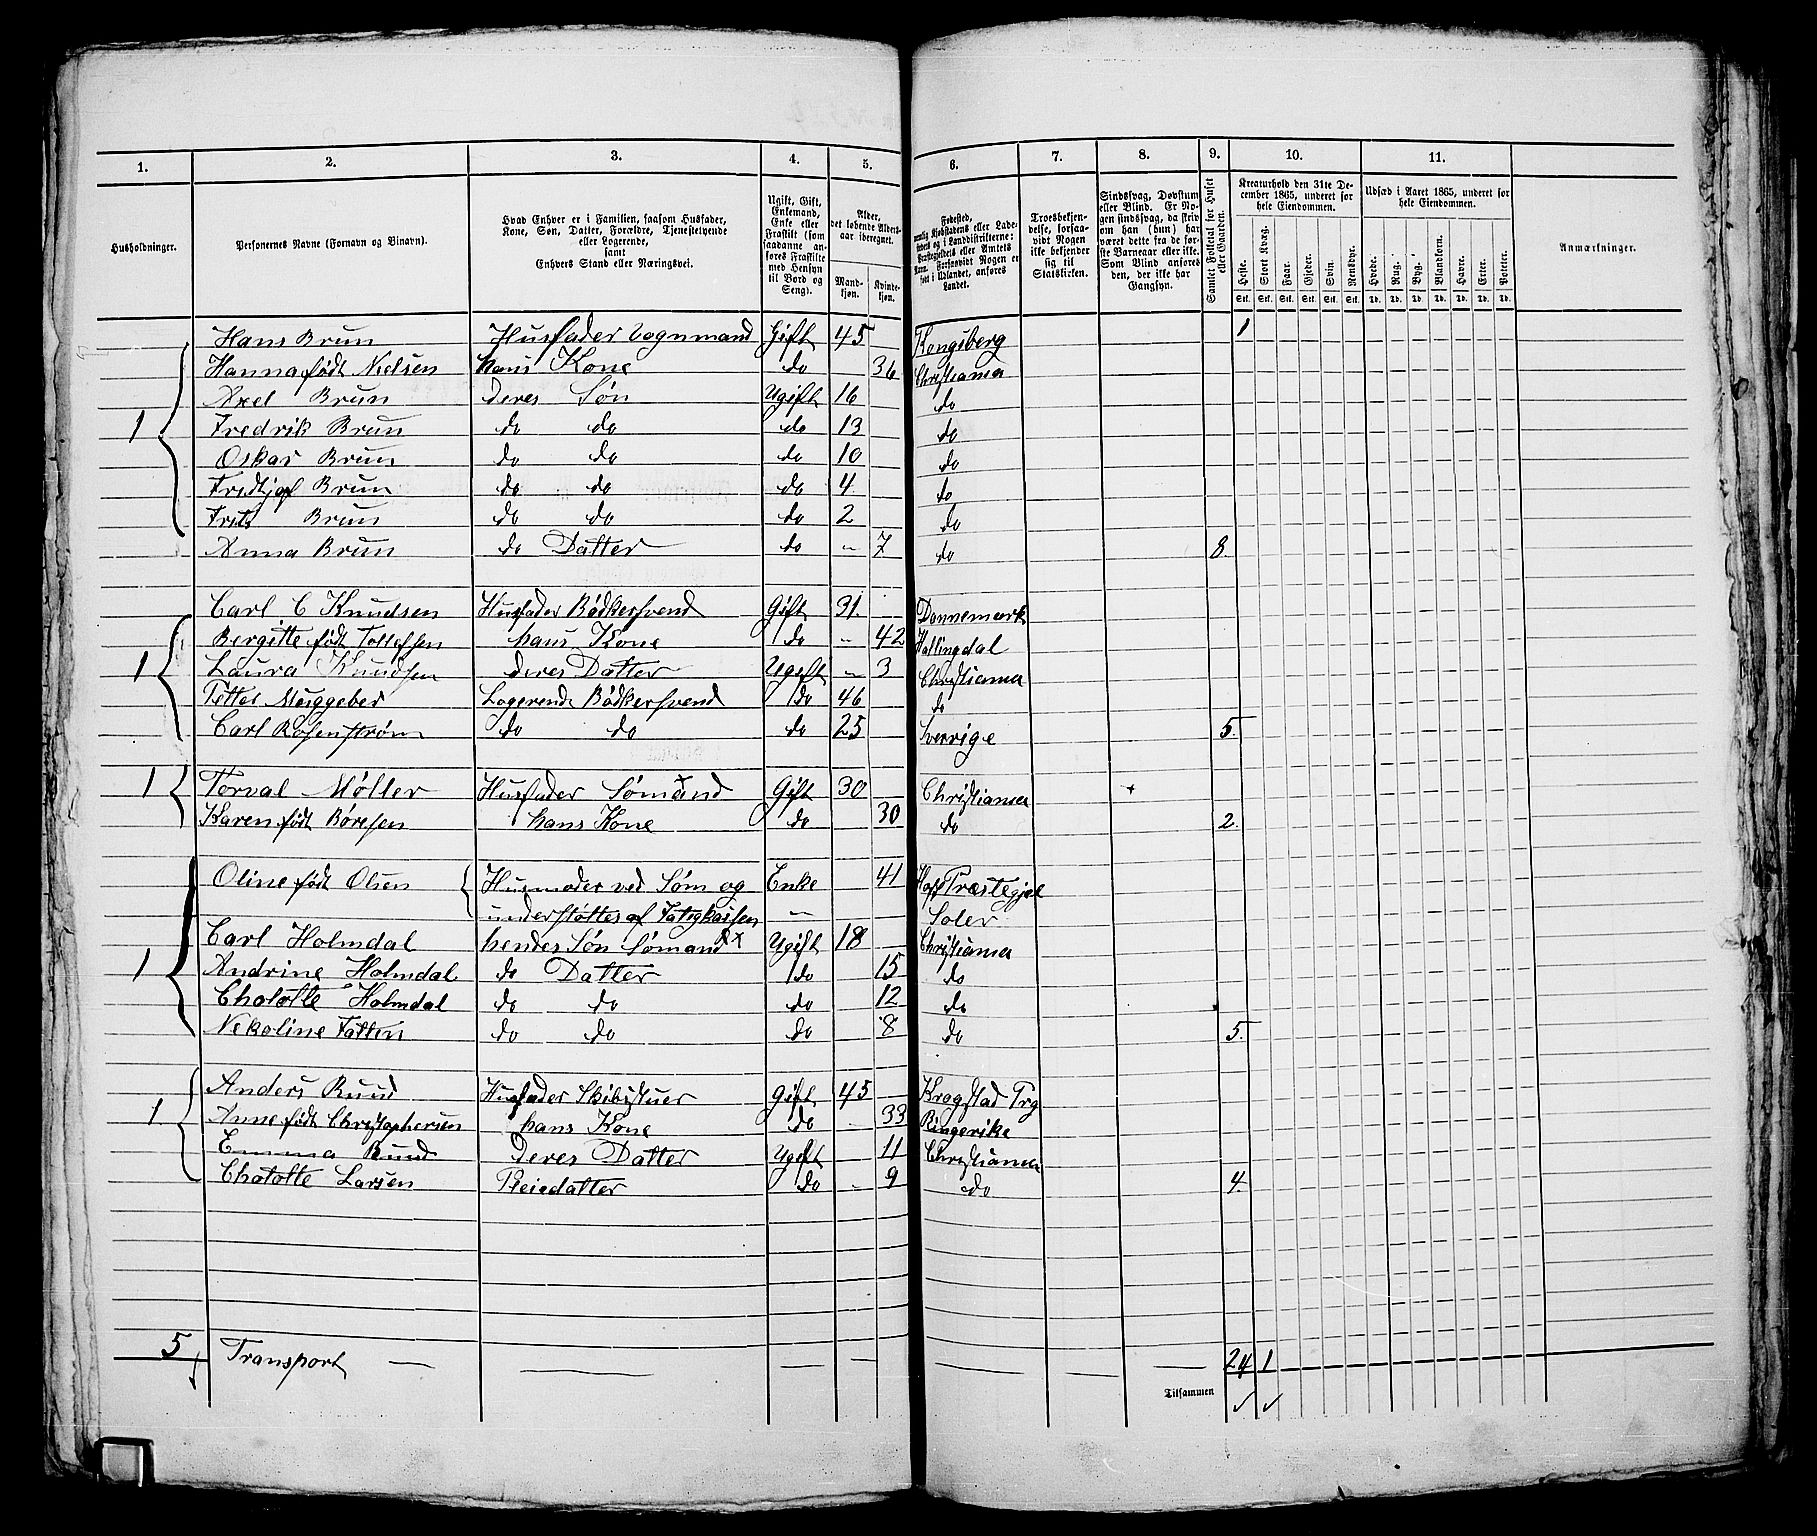 1. 2. 3. 4. 5. 6. 7. 8. 9. 10. 11.
Husholdninger.
Personernes Navne (Fornavn og Binavn).
Hvad Enhver er i Familien, saasom Husfader,
Kone, Søn, Datter, Forældre, Tjenestetyende
eller Logerende,
samt
Enhvers Stand eller Næringsvei.
Ugift, Gift,
Enkemand,
Enke eller
Fraskilt (som
saadanne an-
føres Fraskilte
med Hensyn
til Bord og
Seng).
Alder,
det løbende Alders-
aar iberegnet.
Mand-
kjøn.
Kvinde-
kjøn.
Fødested,
Troesbekjen-
delse, forsaa-
vidt Nogen
ikke bekjender
sig til
Statskirken.
Sindssvag, Døvstum
eller Blind. Er No-
gen sindssvag, da skriv
om han (hun) har
været dette fra de før-
ste Barneaar eller ikke.
Som Blind anføres
den, der ikke har
Gangsyn.
Samlet Folketal for Huset
eller Gaarden.
Kreaturhold den 31te De-
cember 1865, underet for
hele Eiendommen.
Heste. Stort Kvæg. Faar. Gjeder. Svin. Rensdyr.
Stk. Stk. Stk. Stk. Stk. Stk.
Udsæd i Aaret 1865, underet for
hele Eiendommen.
Hvede. Rug. Byg. Blandkorn. Havre. Erter. Poteter.
Td. Td. Td. Td. Td. Td. Td.
Anmærkninger.
Hans Brun Husfader Vognmand Gift 45 Kongsberg 1
Hanna født Nielsen hans Kone do 36 Christiania
Axel Brun deres Søn Ugift 16 do
1 Fredrik Brun do do do 13 do
Oskar Brun do do do 10 do
Fridtjof Brun do do do 4 do
Fritz Brun do do do 2 do
Anna Brun do Datter do - 7 do 8.
Carl C Knudsen Husfader Bødkersvend Gift 31. Dannemark
Bergitte født Tollefsen hans Kone do - 42 Hallingdal
1 Laura Knudsen deres Datter Ugift - 3 Christiania
Petter Muggeber Logerende Bødkersvend do 46 do
Carl Rosenstrøm do do do 25 Sverrige 5.
1 Torval Møller Husfader Sømand Gift 30 Christiania +
Karen født Børesen hans Kone do 30 do 2.
Oline født Olsen Husmoder ved Søm og Enke 41 Hoff Præstegjel
understøttes af Fatigkassen - Soler
Carl Holmdal hendes Søn Sømand x Ugift 18 Christiania
1 Andrine Holmdal do Datter do 15 do
Chatotte Holmdal do do do 12 do
Nekoline Fatten do do do 8 do 5.
Anders Ruud Husfader Skibistuer Gift 45 Krogstad Prg
1. Anne født Christophersen hans Kone do 33 Ringerike
Emma Ruud Deres Datter Ugift 11 Christiania
Chatotte Larsen Pleiedatter do - 9 do 4.
5 Transport — — — — — — 24 1
Tilsammen ✓ ✓